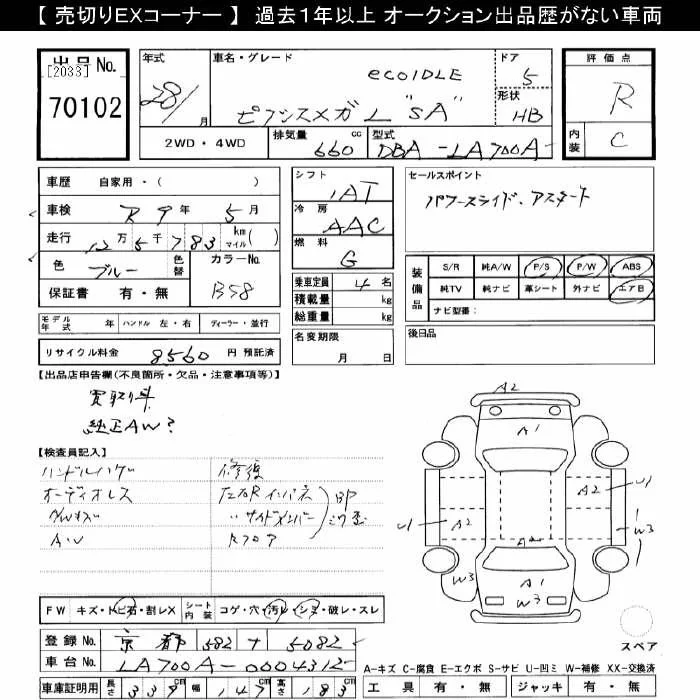 【 売切りEXコーナー 】 過去１年以上 オークション出品歴がない車両
出品 No.
[2033]
70102
年式
28/
月
車名・グレード
ecoIDLE
ピクシスメガ L "SA"
ドア
5
形状
HB
2WD ・ 4WD
排気量
660 cc
型式
DBA -LA700A-
評価点
R
内装
C
車歴 自家用 ・ ( )
車検 R 9 年 5 月
走行 12万 5千 783 km マイル ( )
色 ブルー
色替
カラーNo.
B58
保証書 有 ・ 無
シフト
IAT
冷房
AAC
燃料
G
乗車定員 4 名
積載量 kg
総重量 kg
セールスポイント
パワースライド、アスタート
装備品
S/R 純A/W P/S P/W ABS
純TV 純ナビ 革シート 外ナビ エアB
ナビ型番:
モデル年式 年 ハンドル 左 ・ 右 ディーラー ・ 並行
リサイクル料金 8560 円 預託済
名変期限
月 日
後日品
【出品店申告欄(不良箇所・欠品・注意事項等)】
買取り車
純正AW?
【検査員記入】
ハンドルハゲ
オーディオレス
A/W
修復
左右Rインパネ
〃サイドメンバー
Rフロア
BP
A2
A1
A2
U1
W3
U1
A2
A2
W3
A1
W3
スペア
FW キズ・トビ石・割レX
シート内装 コゲ・穴・汚レ・シミ・破レ・スレ
登録 No. 京都 582 ナ 5082
車台 No. LA700A-0004312
車庫証明用 長さ 339 cm 幅 147 cm 高さ 183 cm
A-キズ C-腐食 E-エクボ S-サビ U-凹ミ W-補修 XX-交換済
工具 有 ・ 無 ジャッキ 有 ・ 無